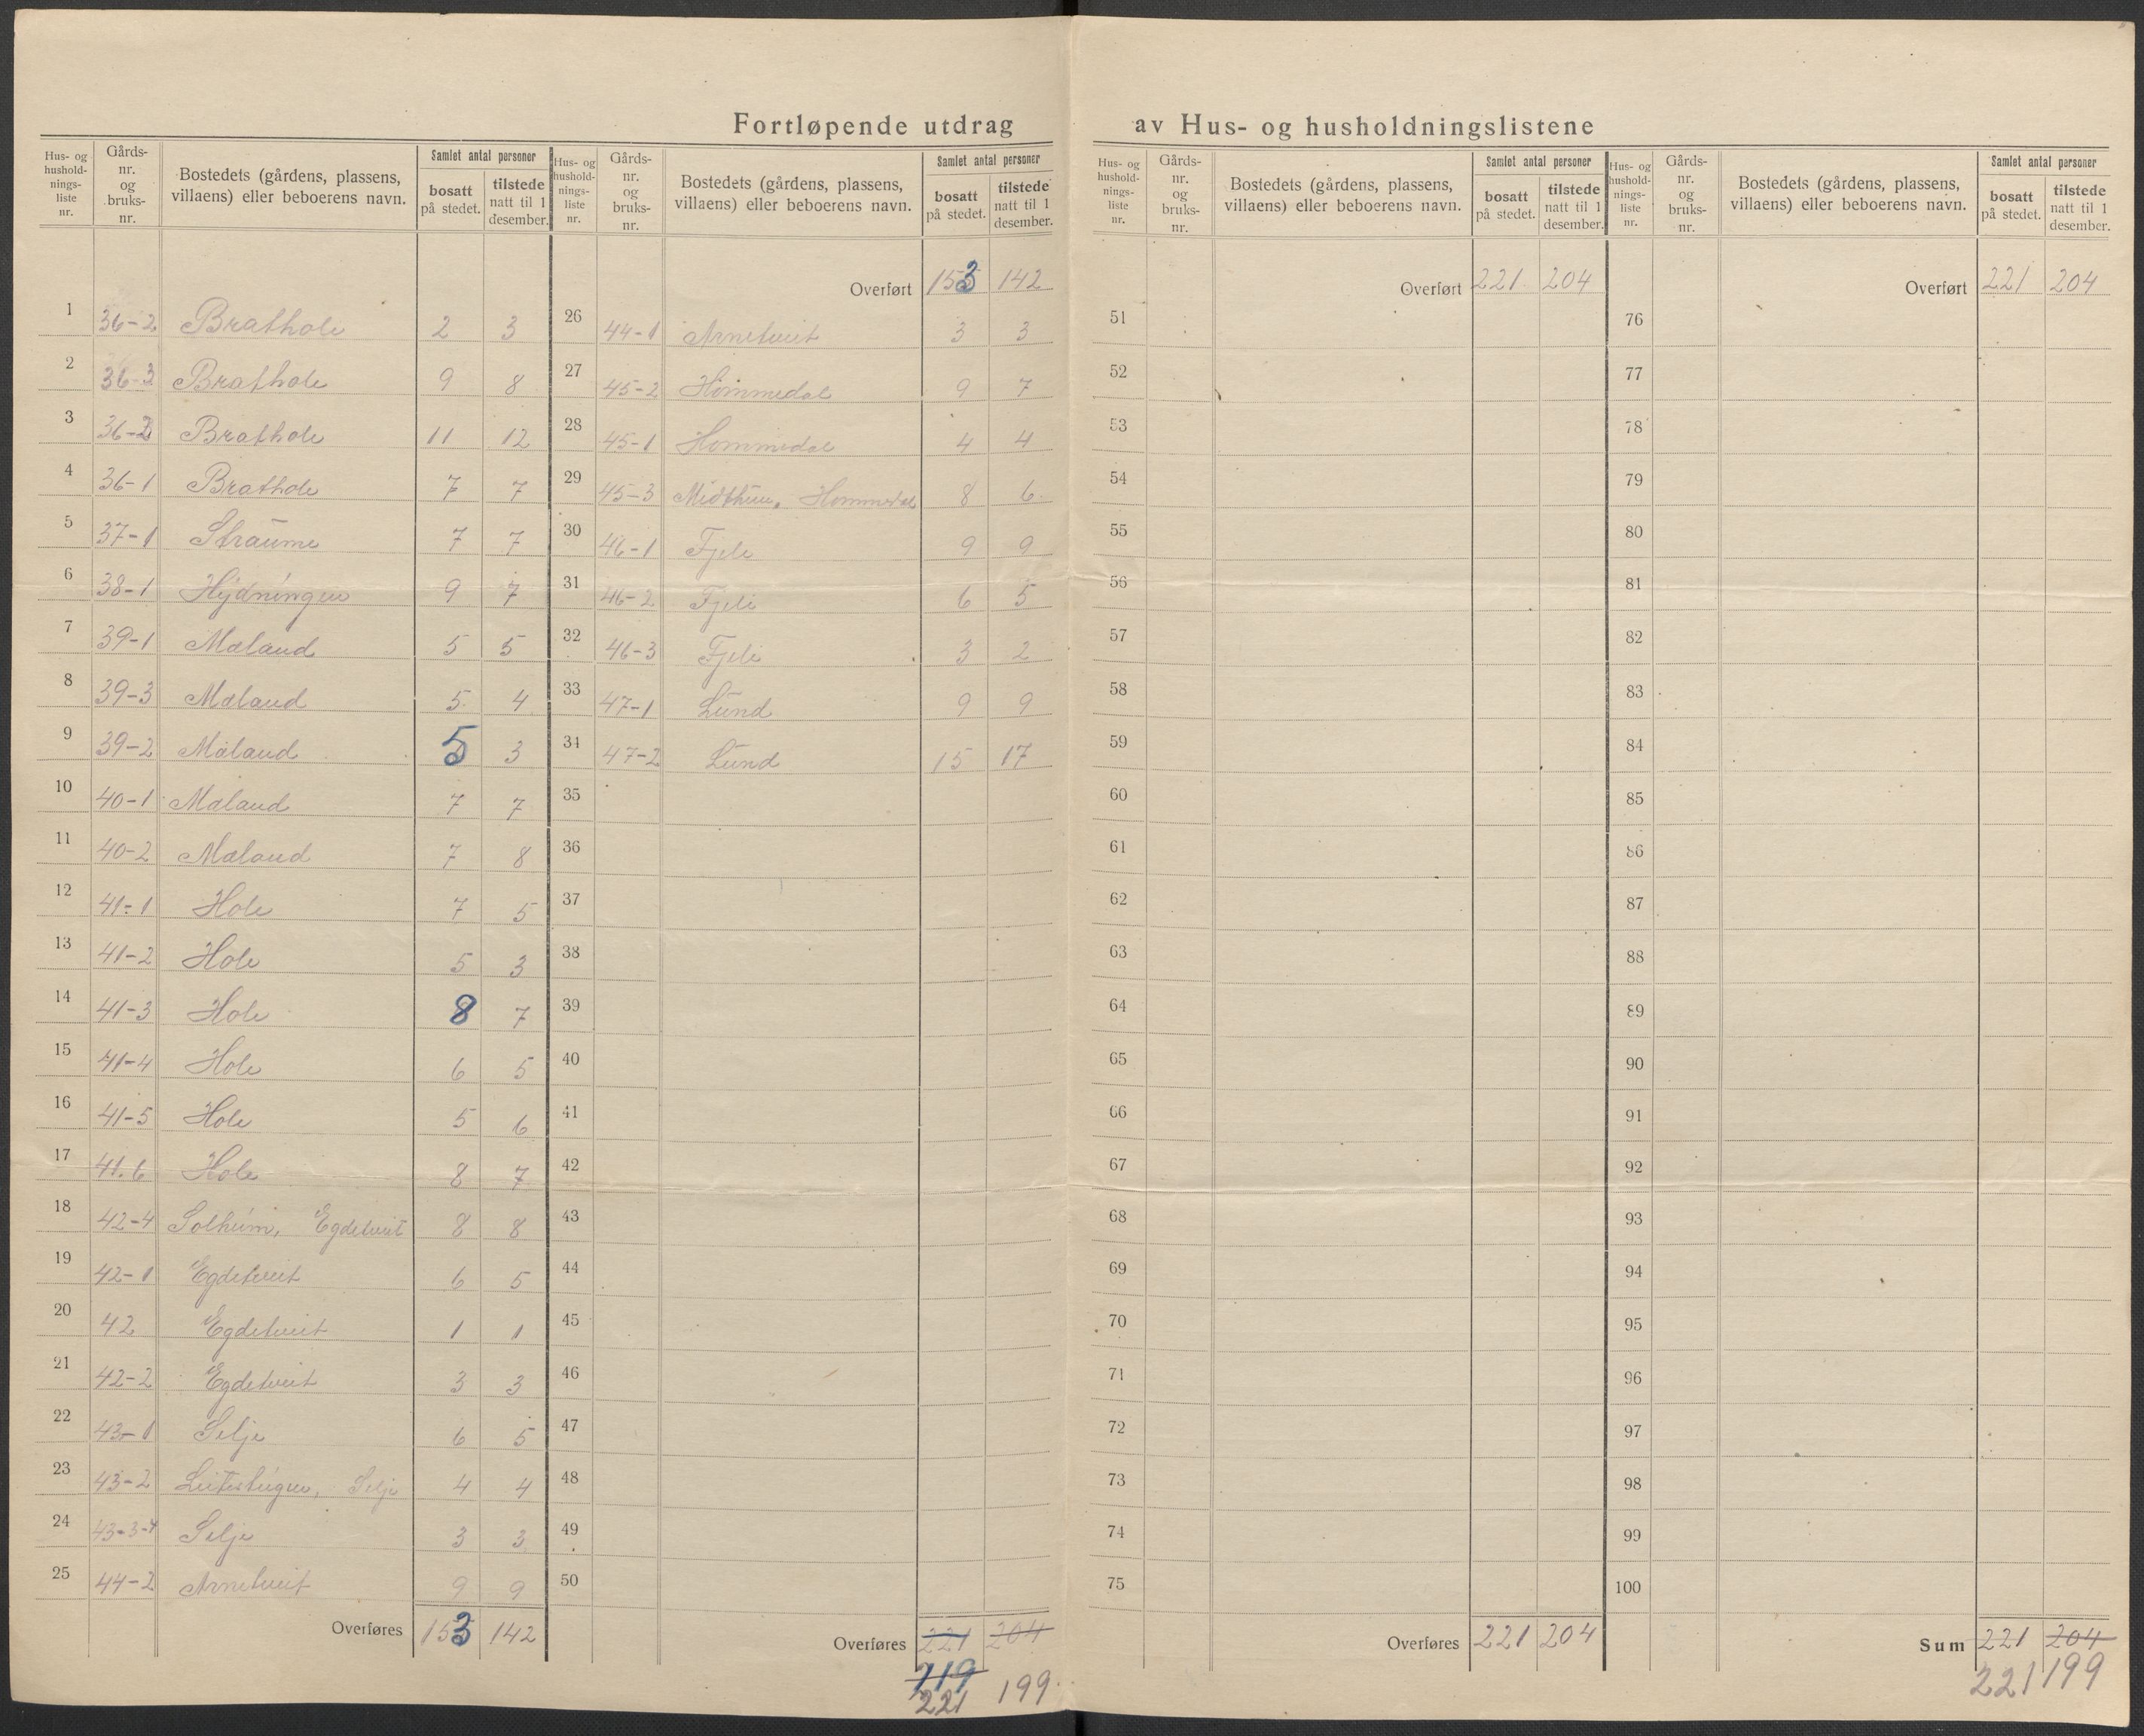 Fortløpende utdrag av Hus- og husholdningslistene
Hus- og hushold- nings- liste nr. Gårds- nr. og bruks- nr. Bostedets (gårdens, plassens, villaens) eller beboerens navn. Samlet antal personer bosatt på stedet. tilstede natt til 1 desember.
1 36-2 Brathole 2 3
2 36-3 Brathole 9 8
3 36-2 Brathole 11 12
4 36-1 Brathole 7 7
5 37-1 Straume 7 7
6 38-1 Hydningen 9 7
7 39-1 Mæland 5 5
8 39-3 Mæland 5 4
9 39-2 Mæland 5 3
10 40-1 Mæland 7 7
11 40-2 Mæland 7 8
12 41-1 Hole 7 5
13 41-2 Hole 5 3
14 41-3 Hole 8 7
15 41-4 Hole 6 5
16 41-5 Hole 5 6
17 41.6 Hole 8 7
18 42-4 Solheim, Egdetveit 8 8
19 42-1 Egdetveit 6 5
20 42 Egdetveit 1 1
21 42-2 Egdetveit 3 3
22 43-1 Selje 6 5
23 43-2 Selje 4 4
24 43-3-4 Selje 3 3
25 44-2 Arnetveit 9 9
Overføres 153 142
Hus- og hushold- nings- liste nr. Gårds- nr. og bruks- nr. Bostedets (gårdens, plassens, villaens) eller beboerens navn. Samlet antal personer bosatt på stedet. tilstede natt til 1 desember.
Overført 153 142
26 44-1 Arnetveit 3 3
27 45-2 Hommedal 9 7
28 45-1 Hommedal 4 4
29 45-3 Midthun, Hommedal 8 6
30 46-1 Fjele 9 9
31 46-2 Fjeli 6 5
32 46-3 Fjeli 3 2
33 47-1 Lund 9 9
34 47-2 Lund 15 17
35
36
37
38
39
40
41
42
43
44
45
46
47
48
49
50
Overføres 221 204
219
221 199
Hus- og hushold- nings- liste nr. Gårds- nr. og bruks- nr. Bostedets (gårdens, plassens, villaens) eller beboerens navn. Samlet antal personer bosatt på stedet. tilstede natt til 1 desember.
Overført 221 204
51
52
53
54
55
56
57
58
59
60
61
62
63
64
65
66
67
68
69
70
71
72
73
74
75
Overføres 221 204
Hus- og hushold- nings- liste nr. Gårds- nr. og bruks- nr. Bostedets (gårdens, plassens, villaens) eller beboerens navn. Samlet antal personer bosatt på stedet. tilstede natt til 1 desember.
Overført 221 204
76
77
78
79
80
81
82
83
84
85
86
87
88
89
90
91
92
93
94
95
96
97
98
99
100
Sum 221 204
221 199